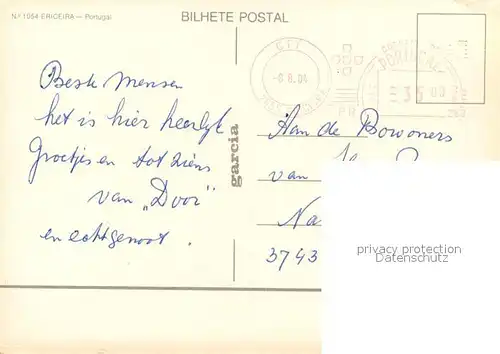 Nº 1054 ERICEIRA — Portugal
BILHETE POSTAL
CTT
-8.8.04
PORTUGAL
garcia
Beste mensen
het is hier heerlijk
Groetjes en tot ziens
van „Door"
en echtgenoot.
Aan de Bowoners
van
Na
3743
privacy protection
Datenschutz